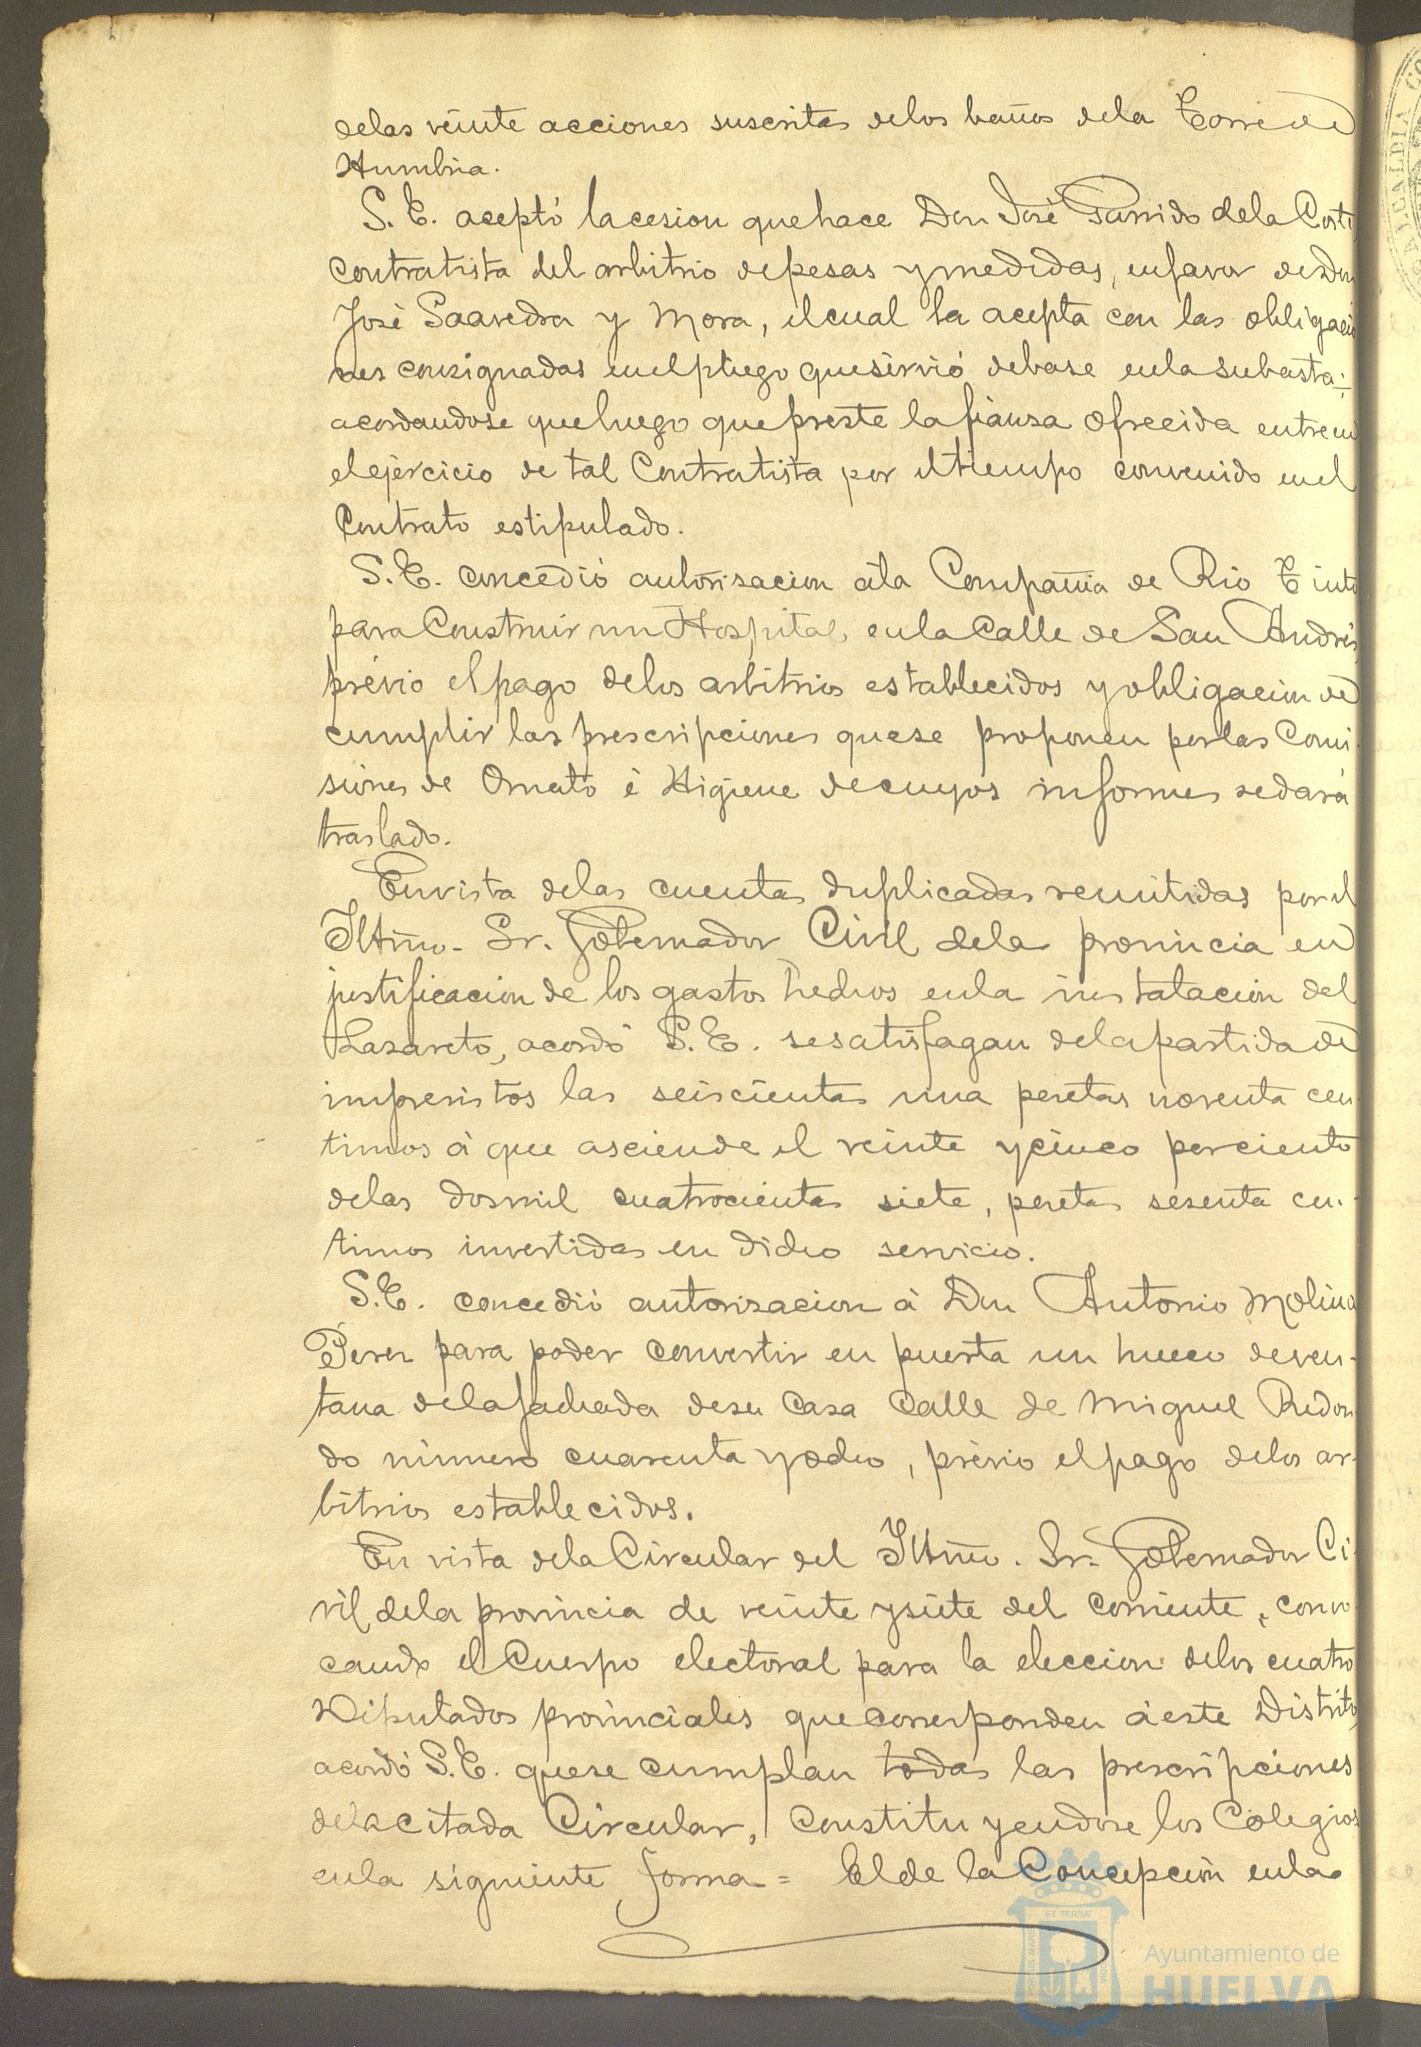 delas veinte acciones suscritas delos baños dela Torre de
Humbria.
S. E. aceptó lacesion quehace Don José Garrido dela Corte
contratista del arbitrio depesas ymedidas, enfavor dedon
José Saavedra y Mora, elcual la acepta con las obligacio
nes consignadas enelpliego quesirvió debase enla subasta;
acordandose queluego quepreste lafianza ofrecida entre en
elejercicio de tal Contratista por eltiempo convenido enel
Contrato estipulado.
S. E. concedió autorisacion ála Compañia de Rio Tinto
para Construir un Hospital, enla Calle de San Andrés,
prévio elpago delos arbitrios establecidos yobligacion de
cumplir las prescripciones quese proponen porlas Comi-
siones de Ornato é Higiene decuyos informes sedará
traslado.
Envista delas cuentas duplicadas remitidas por el
Iltmo. Sr. Gobernador Civil dela provincia en
justificacion de los gastos hechos enla instalacion del
Lazareto, acordó S. E. sesatisfagan delapartida de
imprevistos las seiscientas una pesetas noventa cen-
timos á que asciende el veinte ycinco porciento
delas dosmil cuatrocientas siete, pesetas sesenta cen-
timos invertidas en dicho servicio.
S. E. concedió autorizacion á Don Antonio Molina
Perez para poder convertir en puerta un hueco deven-
tana delafachada desu casa calle de Miguel Redon
do número cuarenta yocho, prévio elpago delos ar-
bitrios establecidos.
En vista dela Circular del Iltmo. Sr. Gobernador Ci-
vil dela provincia de veinte ysiete del corriente, convo
cando el Cuerpo electoral para la eleccion delos cuatro
Diputados provinciales quecorresponden áeste Distrito,
acordó S. E. quese cumplan todas las prescripciones
delacitada Circular, constituyendose los Colegios
enla siguiente forma = El de la Concepción enla
Ayuntamiento de
HUELVA